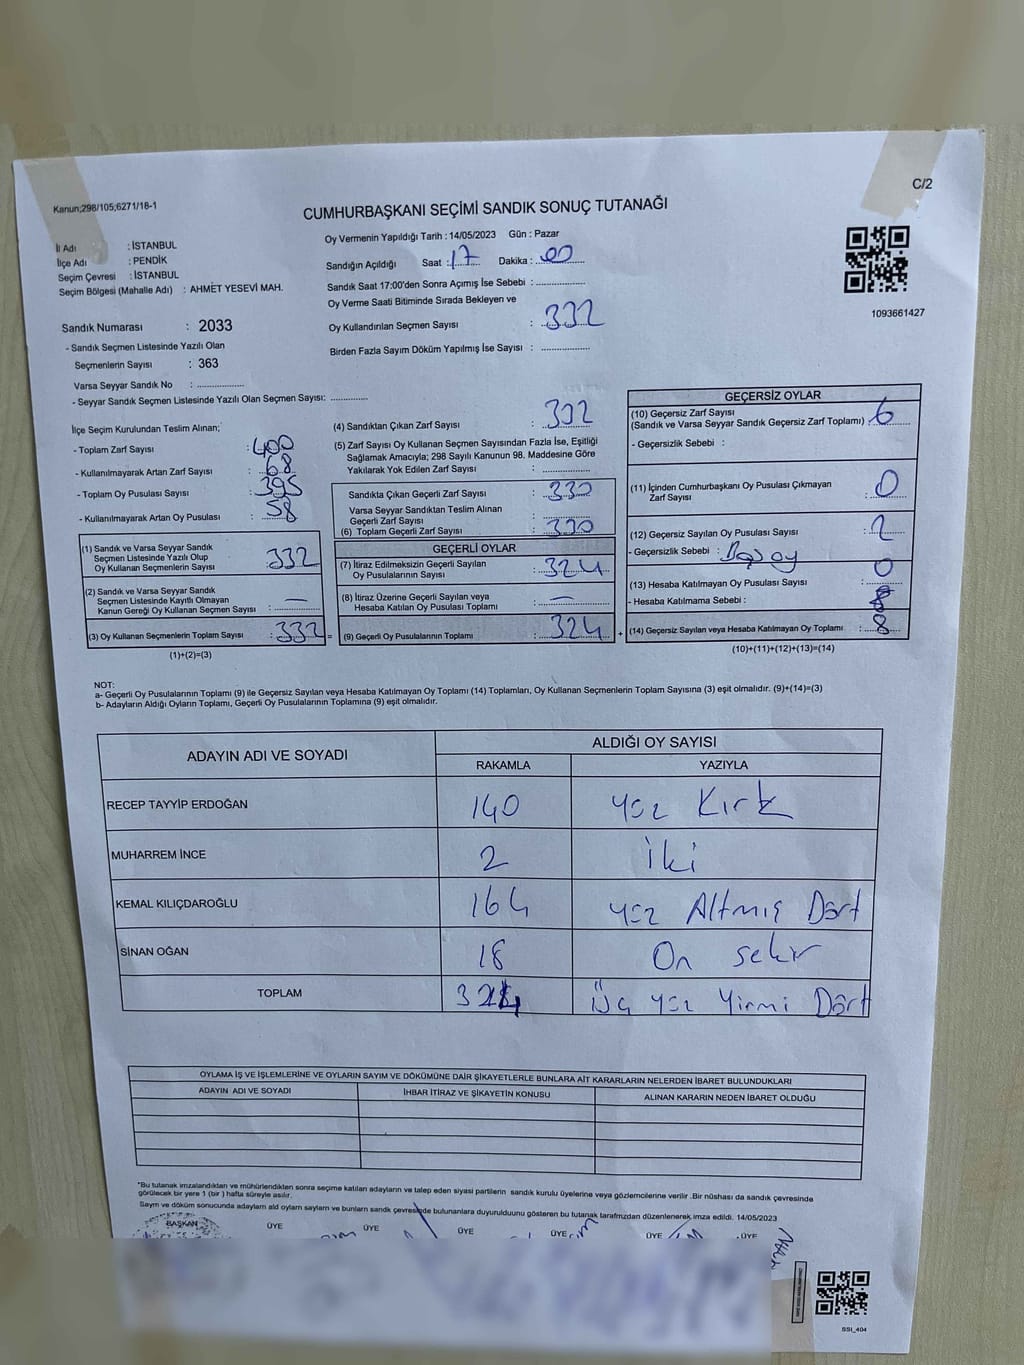 C/2
Kanun;298/105;6271/18-1
CUMHURBAŞKANI SEÇİMİ SANDIK SONUÇ TUTANAĞI
İl Adı : İSTANBUL
İlçe Adı : PENDİK
Seçim Çevresi : İSTANBUL
Seçim Bölgesi (Mahalle Adı) : AHMET YESEVİ MAH.
Sandık Numarası : 2033
- Sandık Seçmen Listesinde Yazılı Olan
Seçmenlerin Sayısı : 363
Varsa Seyyar Sandık No : ..................
- Seyyar Sandık Seçmen Listesinde Yazılı Olan Seçmen Sayısı: ..............
Oy Vermenin Yapıldığı Tarih : 14/05/2023 Gün : Pazar
Sandığın Açıldığı Saat : 17 Dakika : 00
Sandık Saat 17:00'den Sonra Açımış İse Sebebi : ..................
Oy Verme Saati Bitiminde Sırada Bekleyen ve
Oy Kullandırılan Seçmen Sayısı : 332
Birden Fazla Sayım Döküm Yapılmış İse Sayısı : ..................
1093661427
İlçe Seçim Kurulundan Teslim Alınan;
- Toplam Zarf Sayısı : 400
- Kullanılmayarak Artan Zarf Sayısı : 68
- Toplam Oy Pusulası Sayısı : 395
- Kullanılmayarak Artan Oy Pusulası : 58
(1) Sandık ve Varsa Seyyar Sandık
Seçmen Listesinde Yazılı Olup
Oy Kullanan Seçmenlerin Sayısı : 332
(2) Sandık ve Varsa Seyyar Sandık
Seçmen Listesinde Kayıtlı Olmayan
Kanun Gereği Oy Kullanan Seçmen Sayısı : —
(3) Oy Kullanan Seçmenlerin Toplam Sayısı : 332 =
(1)+(2)=(3)
(4) Sandıktan Çıkan Zarf Sayısı : 332
(5) Zarf Sayısı Oy Kullanan Seçmen Sayısından Fazla İse, Eşitliği
Sağlamak Amacıyla; 298 Sayılı Kanunun 98. Maddesine Göre
Yakılarak Yok Edilen Zarf Sayısı : ..............
Sandıkta Çıkan Geçerli Zarf Sayısı : 330
Varsa Seyyar Sandıktan Teslim Alınan
Geçerli Zarf Sayısı : ..............
(6) Toplam Geçerli Zarf Sayısı : 330
GEÇERLİ OYLAR
(7) İtiraz Edilmeksizin Geçerli Sayılan
Oy Pusulalarının Sayısı : 324
(8) İtiraz Üzerine Geçerli Sayılan veya
Hesaba Katılan Oy Pusulası Toplamı : —
(9) Geçerli Oy Pusulalarının Toplamı : 324 +
GEÇERSİZ OYLAR
(10) Geçersiz Zarf Sayısı
(Sandık ve Varsa Seyyar Sandık Geçersiz Zarf Toplamı) : 6
- Geçersizlik Sebebi :
(11) İçinden Cumhurbaşkanı Oy Pusulası Çıkmayan
Zarf Sayısı : 0
(12) Geçersiz Sayılan Oy Pusulası Sayısı : 2
- Geçersizlik Sebebi : Boş oy
(13) Hesaba Katılmayan Oy Pusulası Sayısı : 0
- Hesaba Katılmama Sebebi : 8
(14) Geçersiz Sayılan veya Hesaba Katılmayan Oy Toplamı : 8
(10)+(11)+(12)+(13)=(14)
NOT:
a- Geçerli Oy Pusulalarının Toplamı (9) ile Geçersiz Sayılan veya Hesaba Katılmayan Oy Toplamı (14) Toplamları, Oy Kullanan Seçmenlerin Toplam Sayısına (3) eşit olmalıdır. (9)+(14)=(3)
b- Adayların Aldığı Oyların Toplamı, Geçerli Oy Pusulalarının Toplamına (9) eşit olmalıdır.
ADAYIN ADI VE SOYADI ALDIĞI OY SAYISI
RAKAMLA YAZIYLA
RECEP TAYYİP ERDOĞAN 140 yüz Kırk
MUHARREM İNCE 2 iki
KEMAL KILIÇDAROĞLU 164 yüz Altmış Dört
SİNAN OĞAN 18 On sekiz
TOPLAM 324 Üç yüz Yirmi Dört
OYLAMA İŞ VE İŞLEMLERİNE VE OYLARIN SAYIM VE DÖKÜMÜNE DAİR ŞİKAYETLERLE BUNLARA AİT KARARLARIN NELERDEN İBARET BULUNDUKLARI
ADAYIN ADI VE SOYADI İHBAR İTİRAZ VE ŞİKAYETİN KONUSU ALINAN KARARIN NEDEN İBARET OLDUĞU
*Bu tutanak imzalandıktan ve mühürlendikten sonra seçime katılan adayların ve talep eden siyasi partilerin sandık kurulu üyelerine veya gözlemcilerine verilir .Bir nüshası da sandık çevresinde
görülecek bir yere 1 (bir ) hafta süreyle asılır.
Sayım ve döküm sonucunda adayların aldı oyların sayların ve bunların sandık çevresinde bulunanlara duyurulduunu gösteren bu tutanak tarafımızdan düzenlenerek imza edildi. 14/05/2023
BAŞKAN ÜYE ÜYE ÜYE ÜYE ÜYE ÜYE
SSI_404